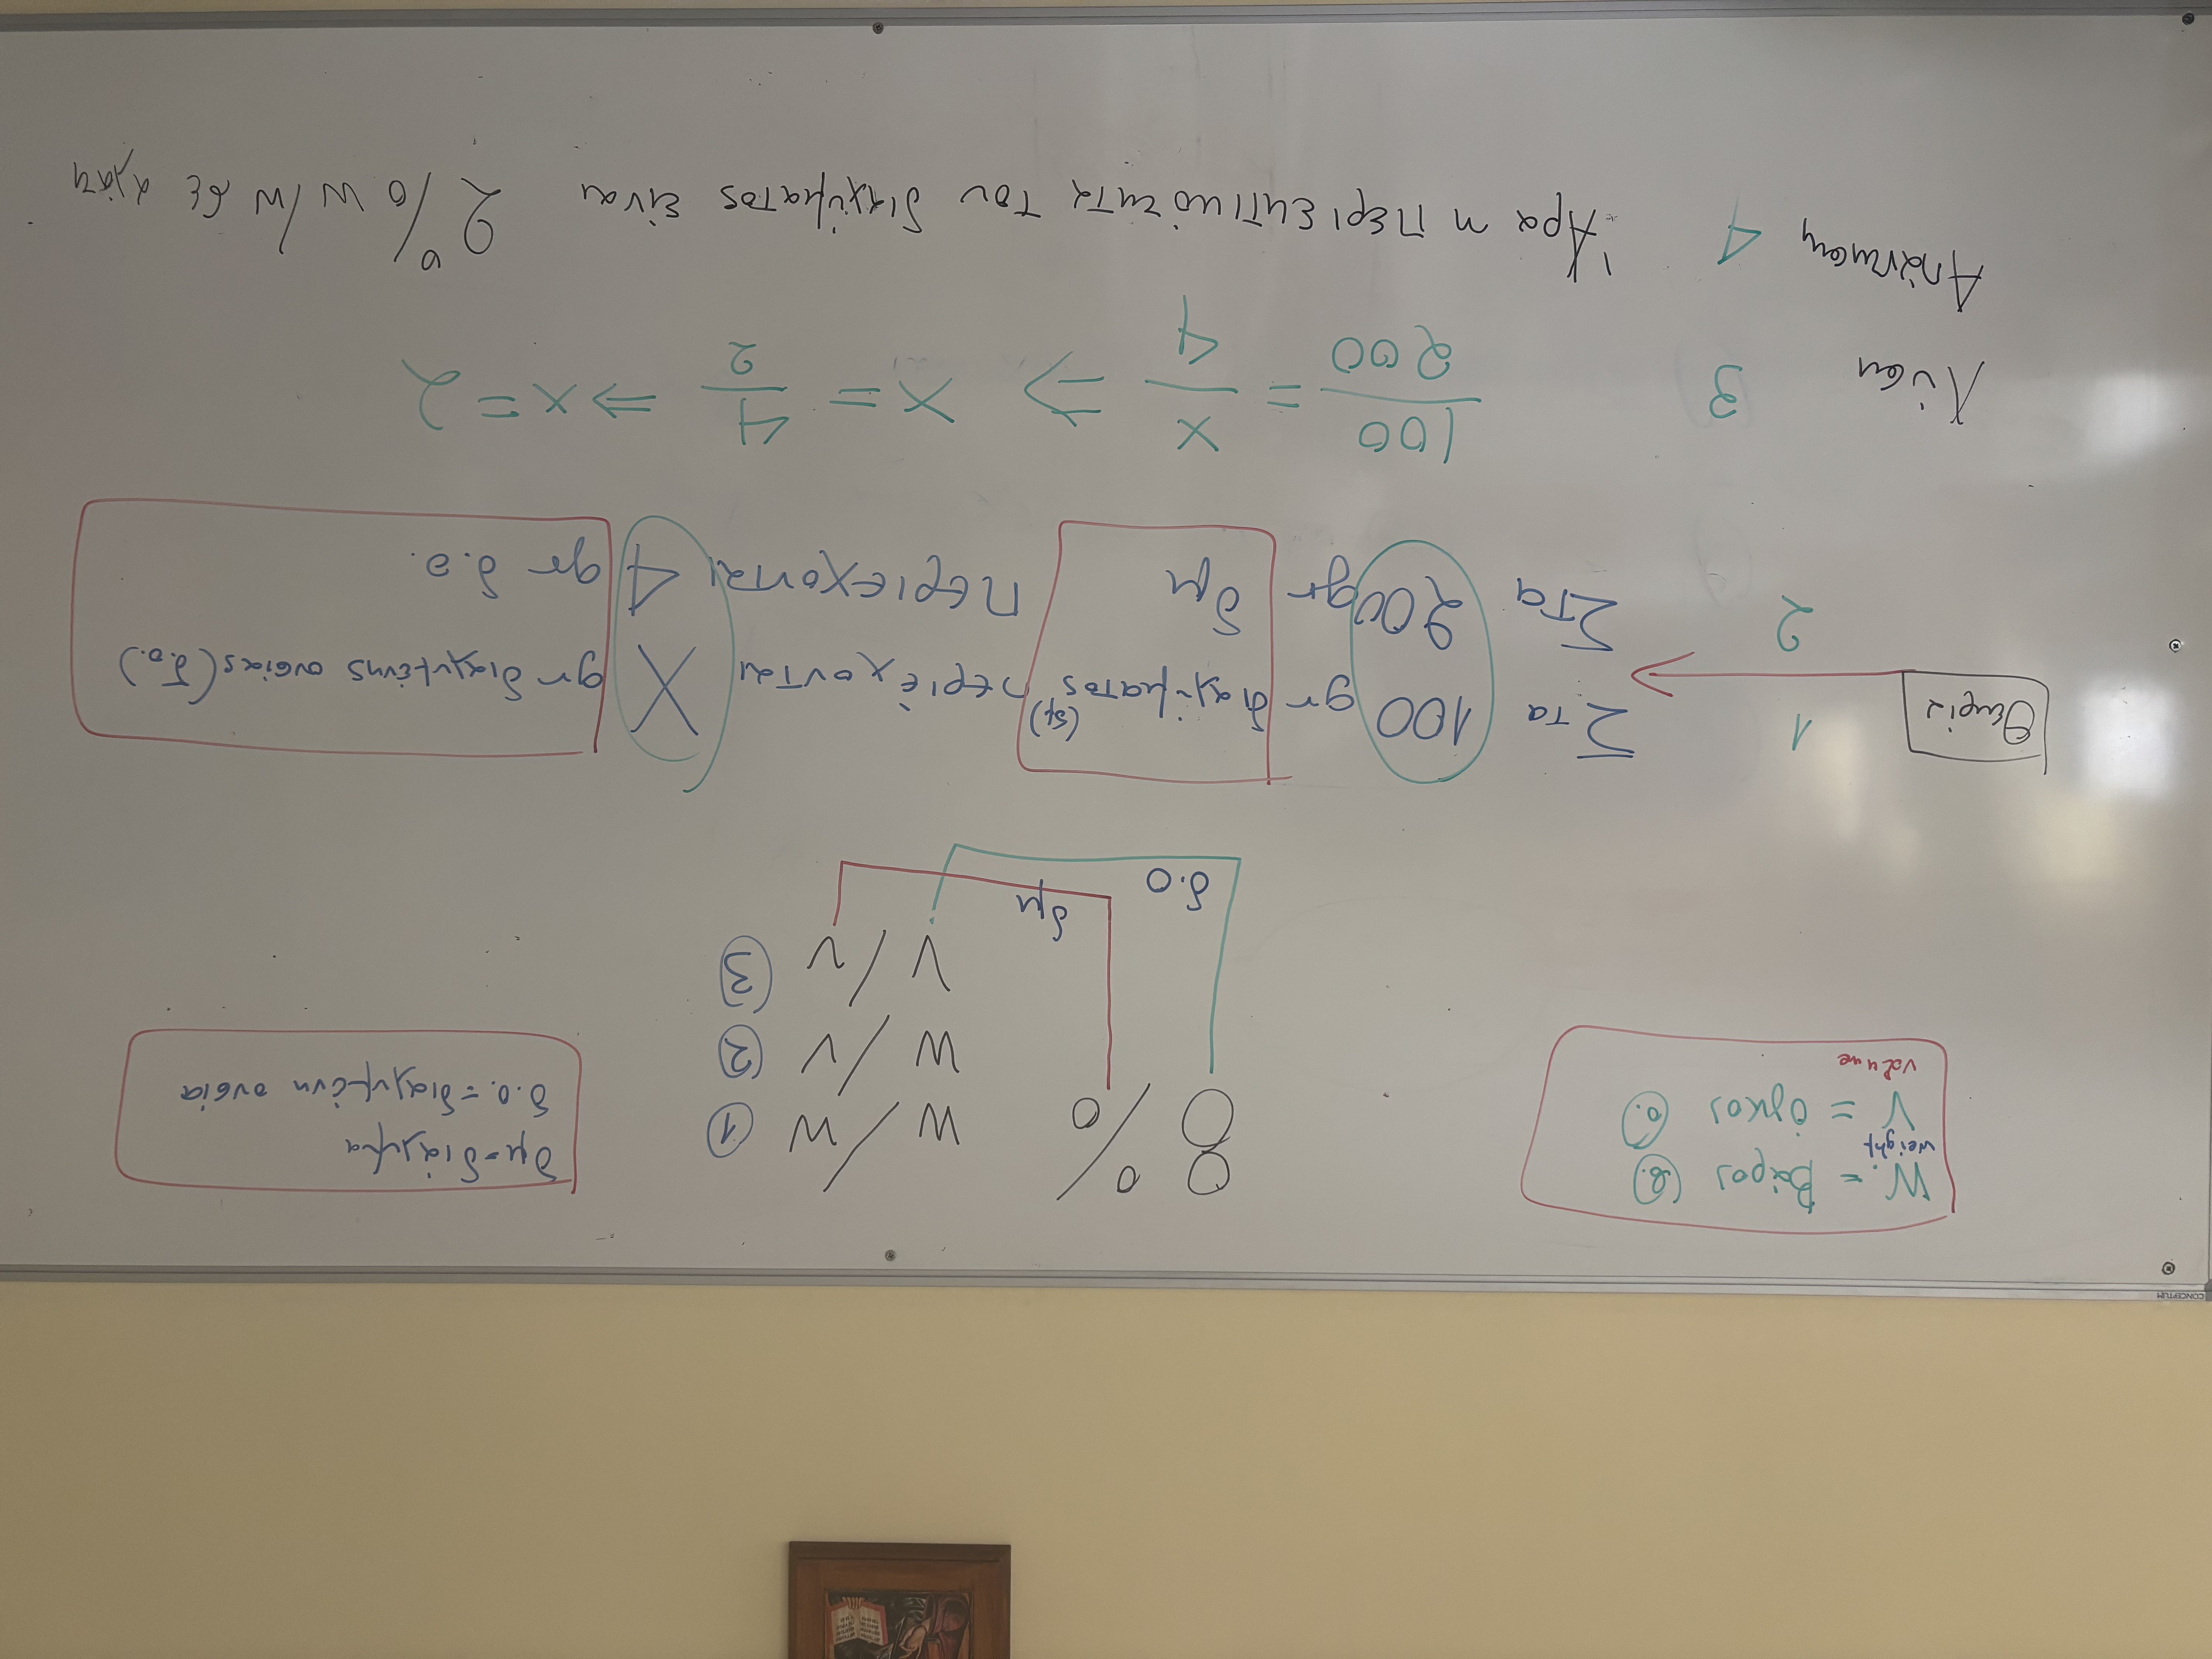 CONCEPTUM
W = βάρος (β.)
weight
V = όγκος (ο.)
volume
8 % w/w (1)
w/v (2)
v/v (3)
δ.ο
δμ
δμ = διάλυμα
δ.ο. = διαλυμένη ουσία
Θεωρία
1 Στα 100 gr διαλύματος (δμ) περιέχονται X gr διαλυμένης ουσίας (δ.ο.)
2 Στα 200 gr δμ περιέχονται 4 gr δ.ο.
Λύση 3 100/200 = x/4 => x = 4/2 => x = 2
Απάντηση 4 Άρα η περιεκτικότητα του διαλύματος είναι 2 % w/w σε αλάτι